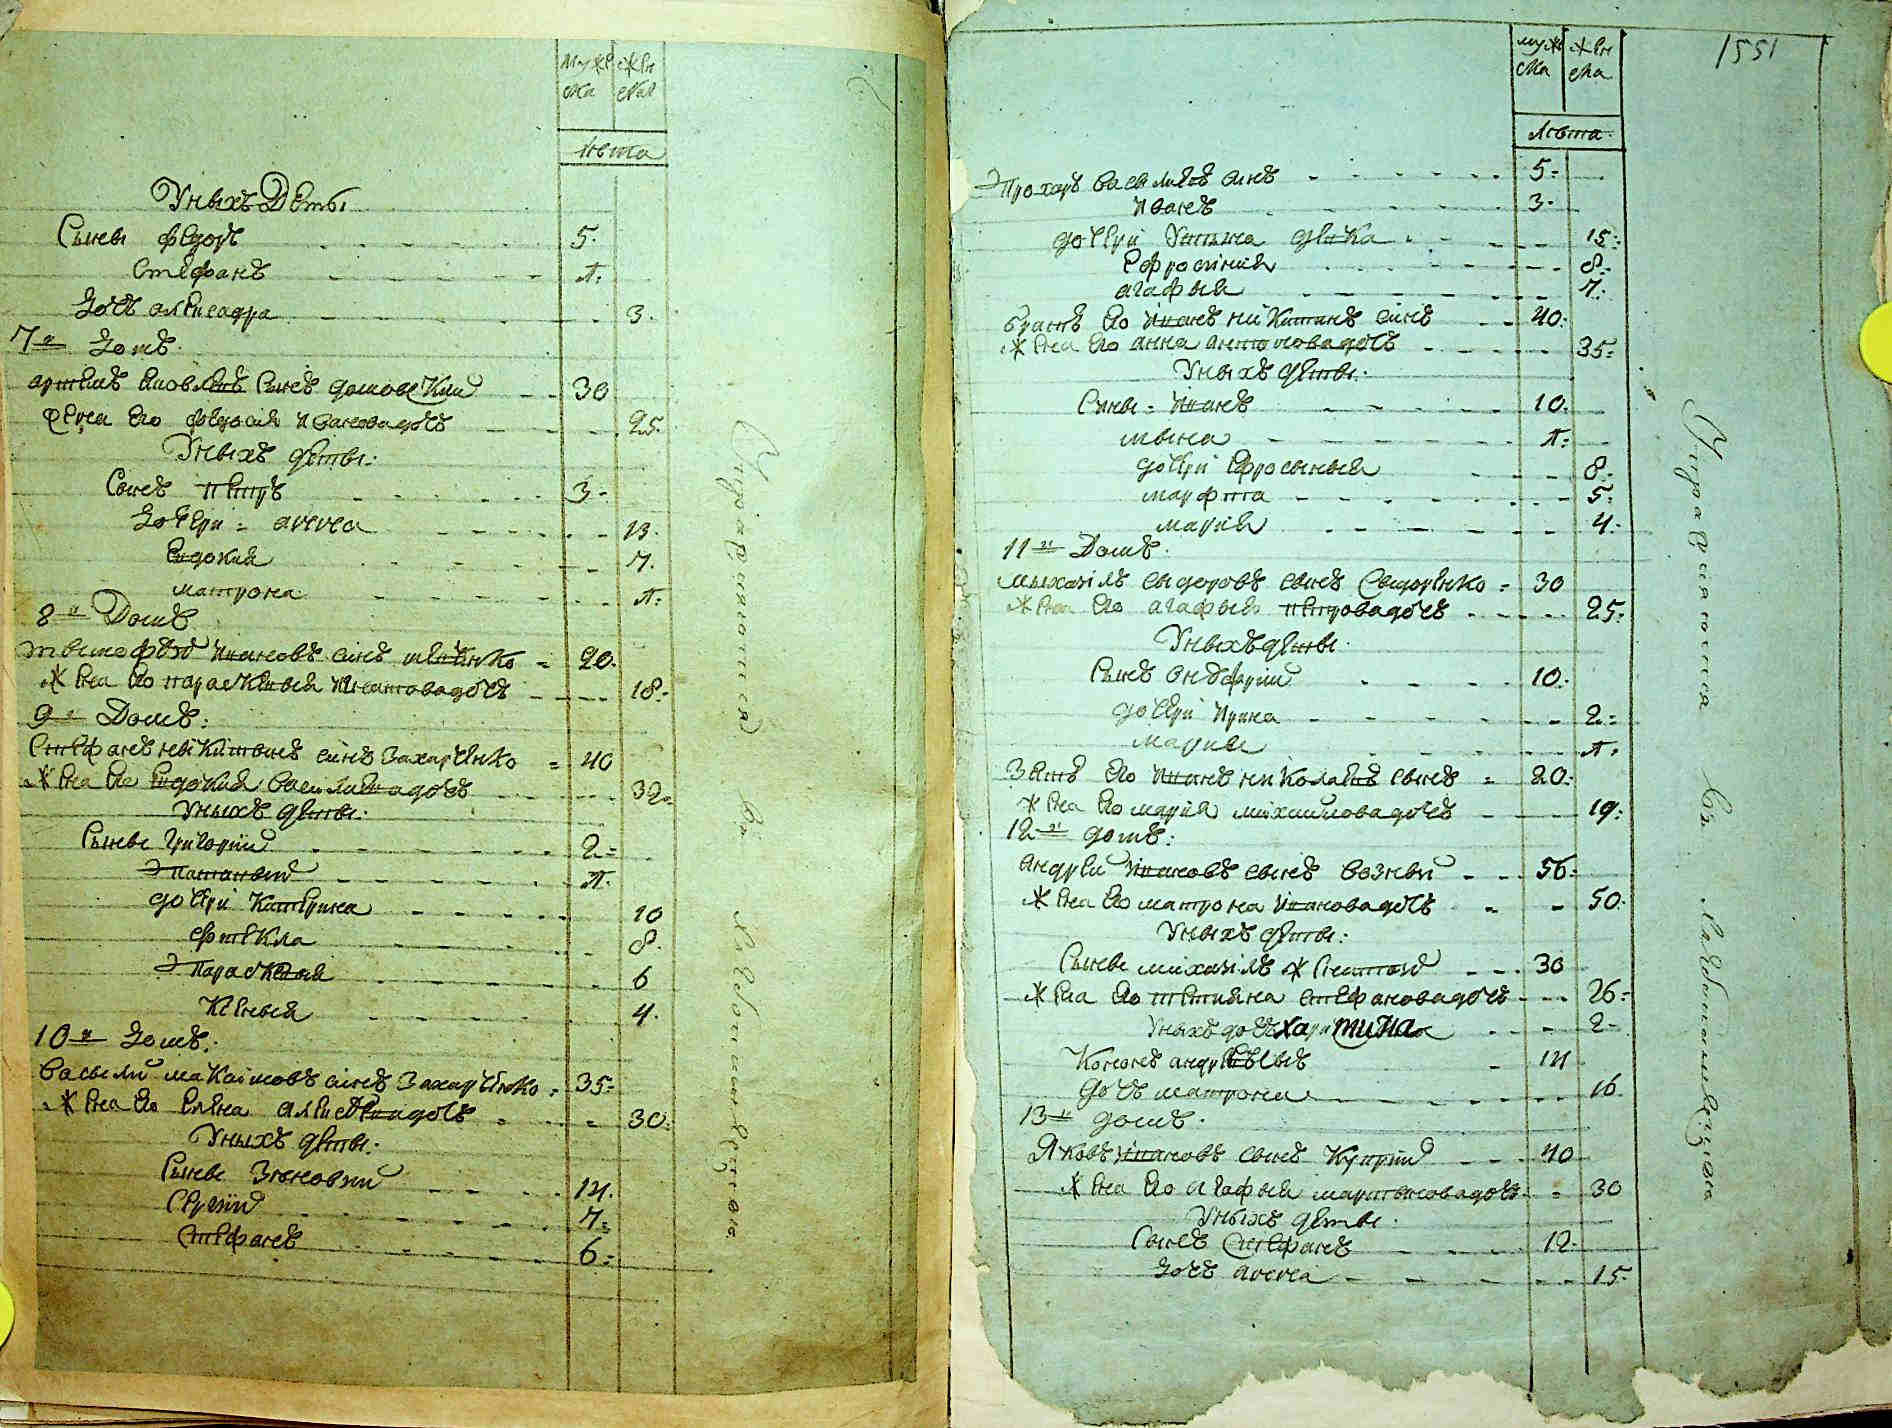 муже ска
жен ска
лѣта
У ныхъ дети
Сыны Федоръ 5.
Стефанъ л:
Дочь Александра 3.
7й домъ.
Артемъ Яковлевъ сынъ домовскій 30
Жена его Федосия Ивановадочь 25.
У ныхъ дети:
Сынъ Петръ 3-
Дочери = Анна 13.
Евдокия 7.
Матрона л:
8й Домъ
Иванов сынъ = 20.
Жена его Параскевыя Игнатовадочь 18-
9й Домъ:
Стефанъ Никитынъ синъ Захарченко = 40
Жена его Евдокия Василиевадочь 32=
У ныхъ дети:
Сыны Григорий 2=
л.
дочери Катерина 10
Фтекла 8.
Параскевыя 6
Ксенья 4.
10й Домъ:
Васыли Максимовъ синъ Захарченко = 35=
Жена его Елена Алексеевадочь = 30:
У ныхъ дети:
Сыны Зѣновий 14.
Сергий 7=
Стефанъ 6=
Упражняются въ хлебопашествою
1551
муже ска
жен ска
лѣта
Прохоръ Васылиевъ синъ 5-
Иванъ 3-
дочери Устына девка 15:
Ефросиния 8-
Агафия 7.
братъ его Иванъ Никитинъ синъ 40:
Жена его Анна Антоновадочь 35=
У ныхъ дети:
Сыны = Иванъ 10:
Мына л:
дочери Ефросыныя 8-
Марфта 5:
Мария 4:
11й Домъ.
Мыхаилъ Сыдоровъ сынъ Сыдоренко = 30
Жена его Агафыя Петровадочь 25:
У ныхъ дети.
Сынъ Онуфрий 10:
дочери Ирина 2=
Марина л.
Зять его Иванъ Николаевъ сынъ = 20:
Жена его Мария Михаиловадочь 19:
12й домъ:
Андрей Ивановъ сынъ Возный 56:
Жена его Матрона Ивановадочь = 50:
У ныхъ дети:
Сыны Михаилъ женатой 30
Жена его Тетияна Стефановадочь 26=
У ныхъ дочь Харитина 2-
Кононъ Андреевъ 14
Дочь Матрона 16.
13й домъ.
Яковъ Ивановъ сынъ Куприй 40
Жена его Агафыя Мартыновадочь = 30
У ныхъ дети.
Сынъ Стефанъ 12.
Дочь Анна 15=
Упражняются въ хлебопашествою